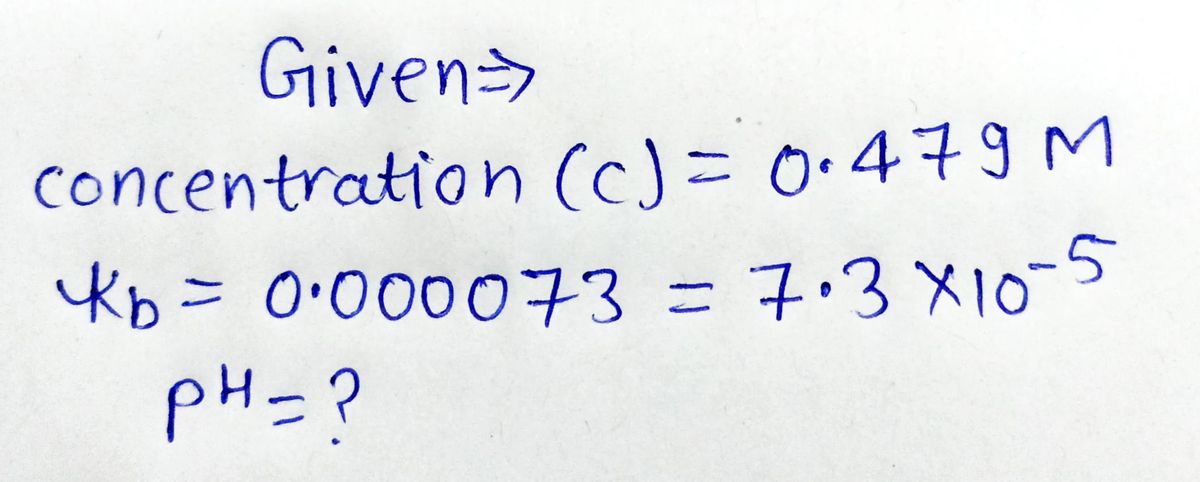 Given⇒
concentration (c) = 0.479 M
Kb = 0.000073 = 7.3 X10-5
pH = ?